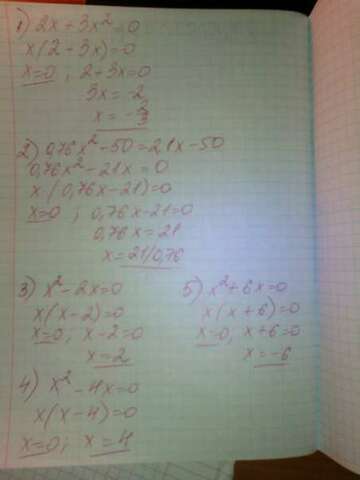 1) 2x + 3x² = 0
x(2 + 3x) = 0
x = 0 ; 2 + 3x = 0
3x = -2
x = -2/3
2) 0,76x² - 50 = 21x - 50
0,76x² - 21x = 0
x (0,76x - 21) = 0
x = 0 ; 0,76x - 21 = 0
0,76x = 21
x = 21/0,76
3) x² - 2x = 0
x(x - 2) = 0
x = 0; x - 2 = 0
x = 2
4) x² - 4x = 0
x(x - 4) = 0
x = 0; x = 4
5) x² + 6x = 0
x(x + 6) = 0
x = 0, x + 6 = 0
x = -6